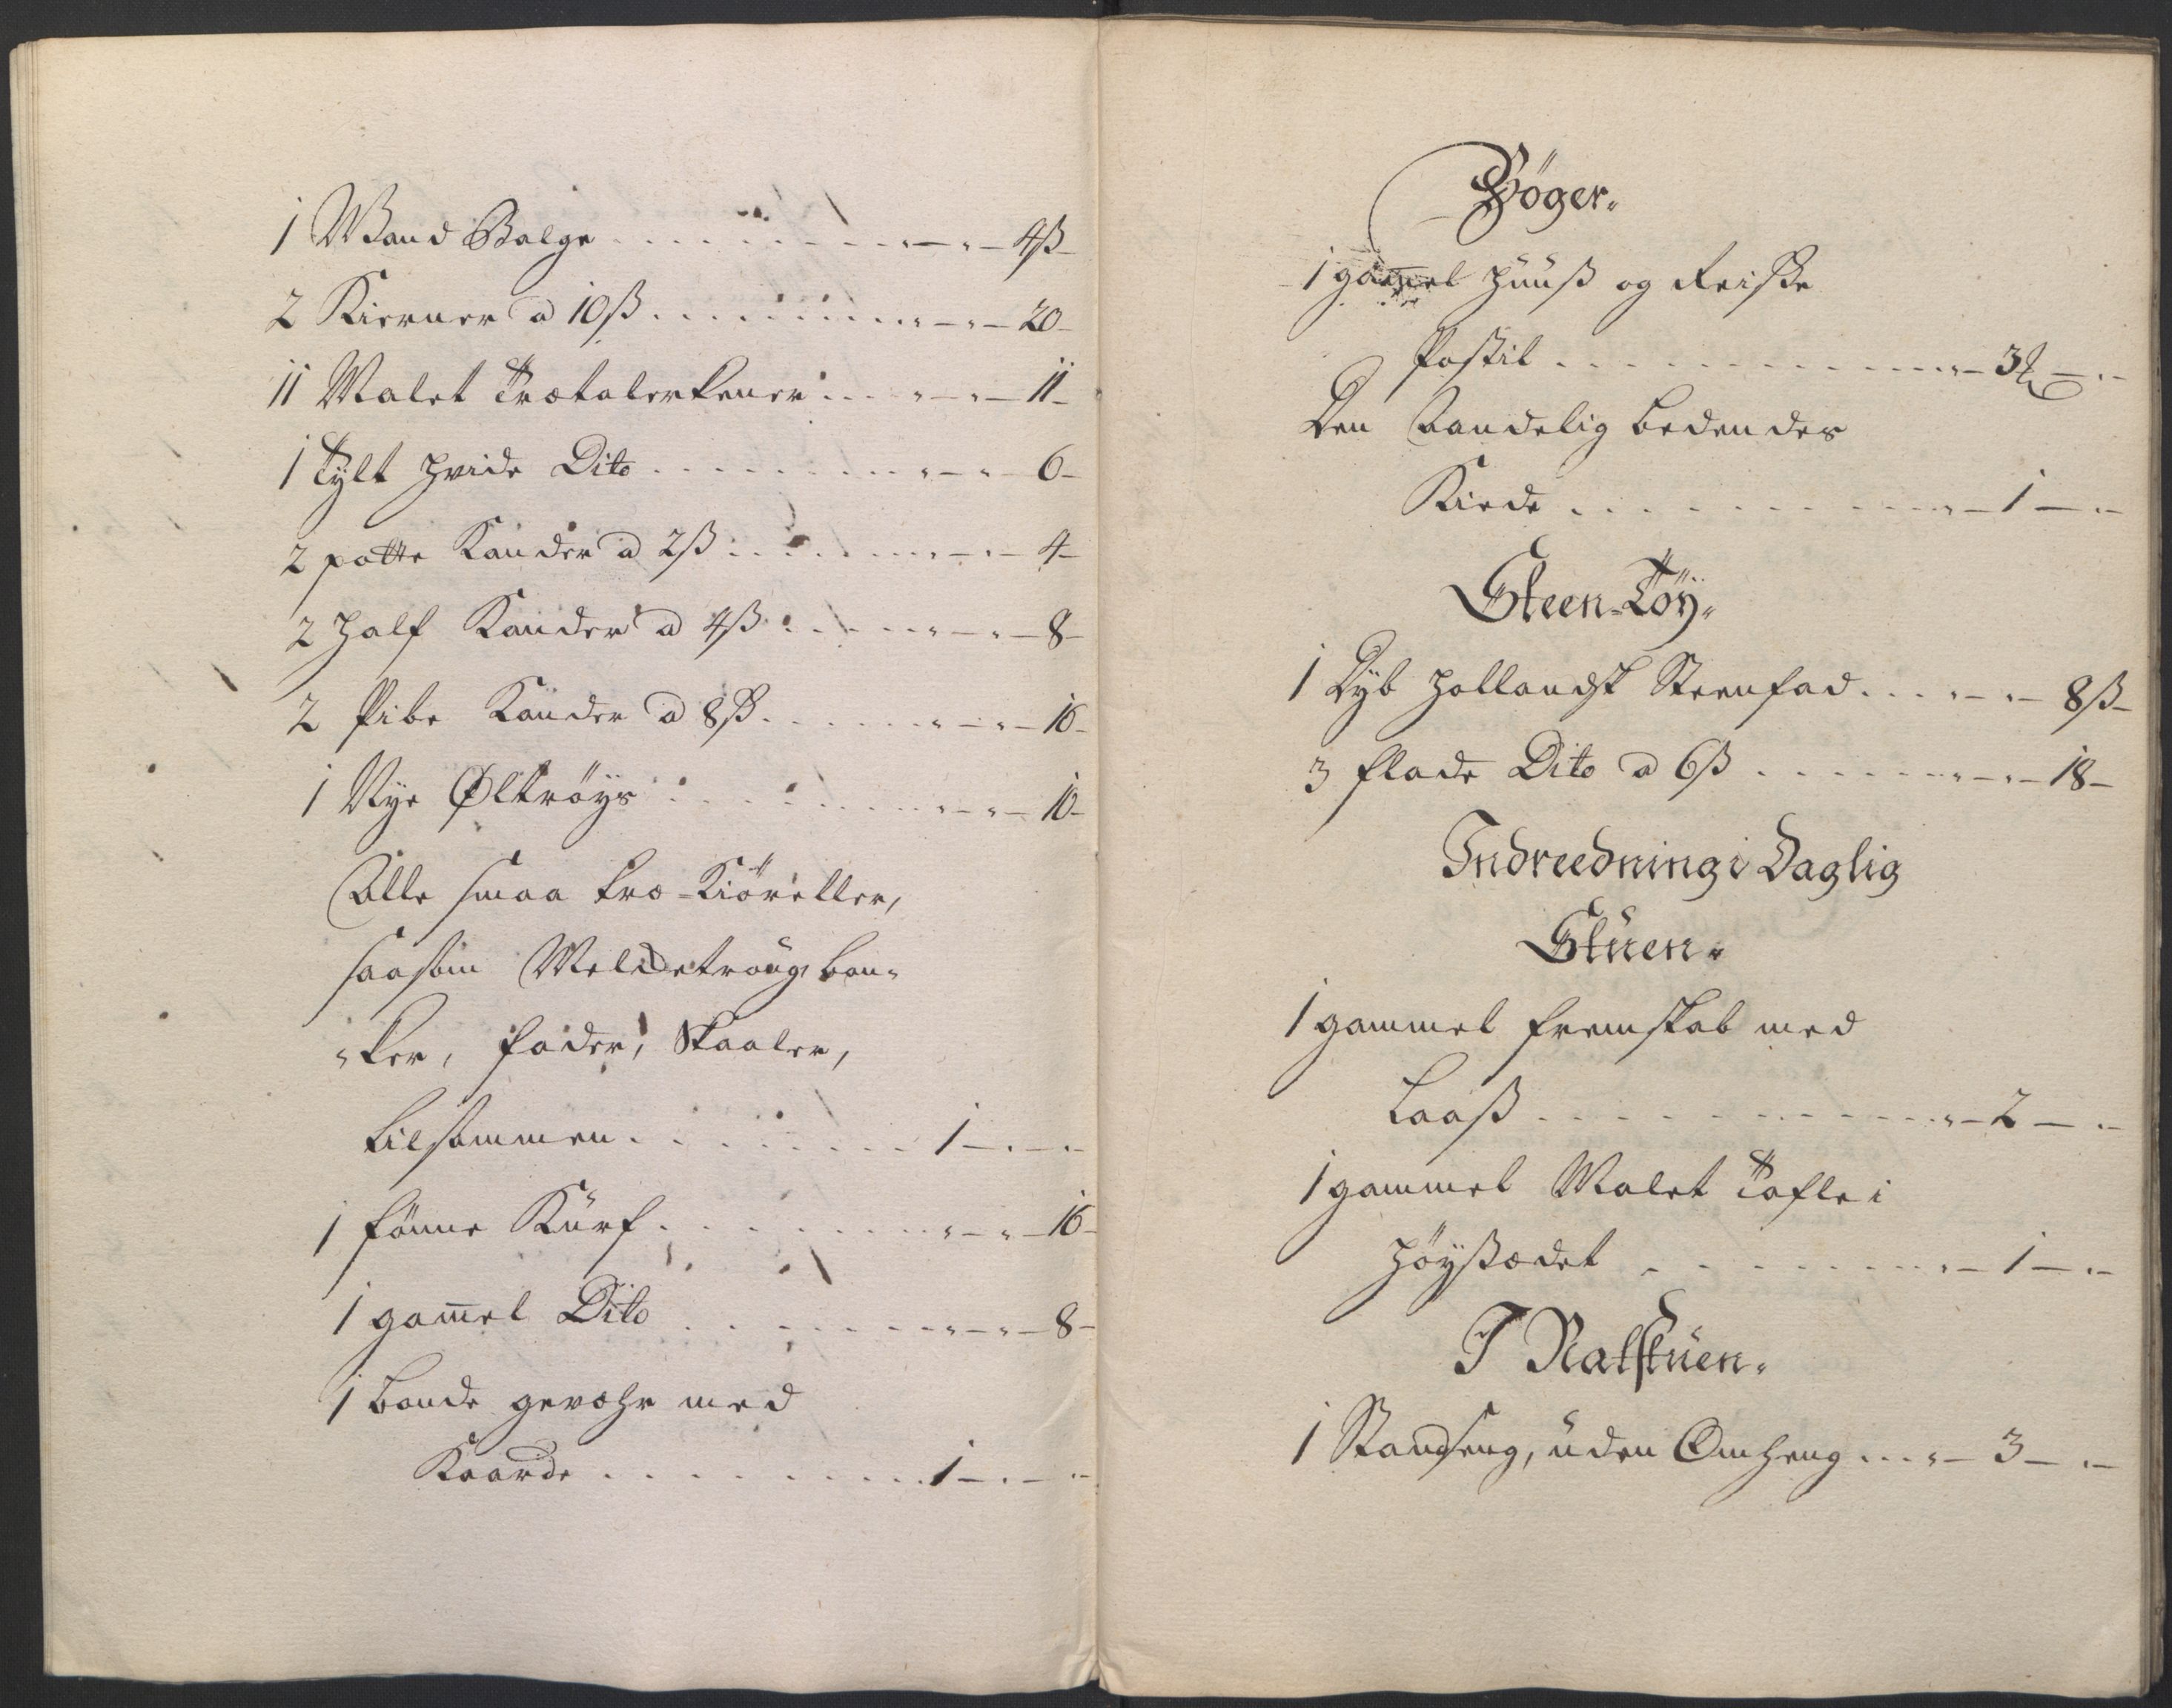 1 Wand Balge . . . . . . . . . . „ — „ — 4ß —
2 Kierner a 10ß . . . . . . . . . . „ — „ — 20 —
11 Malet Trætalerkener . . . „ — „ — 11 —
1 Tylt hvide Dito . . . . . . . . „ — „ — 6 —
2 potte Kander a 2ß . . . . . . . „ — „ — 4 —
2 Half Kander a 4ß . . . . . . „ — „ — 8 —
2 Pibe Kander a 8ß . . . . . . . „ — „ — 16 —
1 Nye Øltröys . . . . . . . . . „ — „ — 10 —
Alle smaa træ-Kiöreller,
saasom Meldetroug, bon-
„ker, Fader, Skaaler,
tilsammen . . . . . . . . . . 1 — „ — „ —
1 fönne Kürf . . . . . . . . . „ — „ — 16 —
1 gam̅el Dito . . . . . . . . . „ — „ — 8 —
1 bonde gevæhr med
Kaarde . . . . . . . . . . 1 — „ — „ —
Böger.
1 gam̅el Huuß og Reiße
Postil . . . . . . . . . . . . „ — 3 — „ —
Den Aandelig bedendes
Kiede . . . . . . . . . . . „ — 1 — „ —
Steen-Töy.
1 Dyb Hollandsk Steenfad . . . „ — „ — 8ß —
3 flade Dito a 6ß . . . . . . . „ — „ — 18 —
Indreedning i Daglig
Stuen.
1 gammel Fremskab med
Laaß . . . . . . . . . . . . „ — 2 — „ —
1 gammel Malet Tafle i
Höysædet . . . . . . . . . „ — 1 — „ —
I Natstuen.
1 Standseng, uden Omheng . . . „ — 3 — „ —